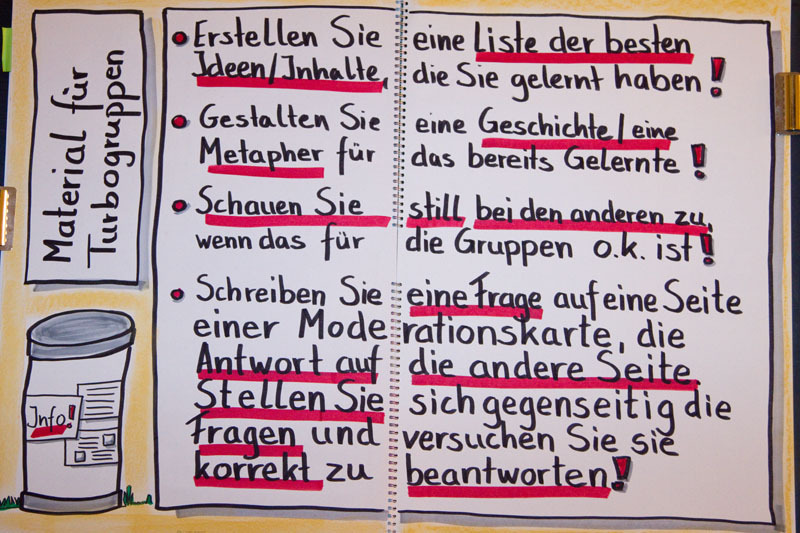 Material für
Turbogruppen
• Erstellen Sie eine Liste der besten
Ideen/Inhalte, die Sie gelernt haben!
• Gestalten Sie eine Geschichte/eine
Metapher für das bereits Gelernte!
• Schauen Sie still bei den anderen zu,
wenn das für die Gruppen o.k. ist!
• Schreiben Sie eine Frage auf eine Seite
einer Moderationskarte, die
Antwort auf die andere Seite.
Stellen Sie sich gegenseitig die
Fragen und versuchen Sie sie
korrekt zu beantworten!
Info!